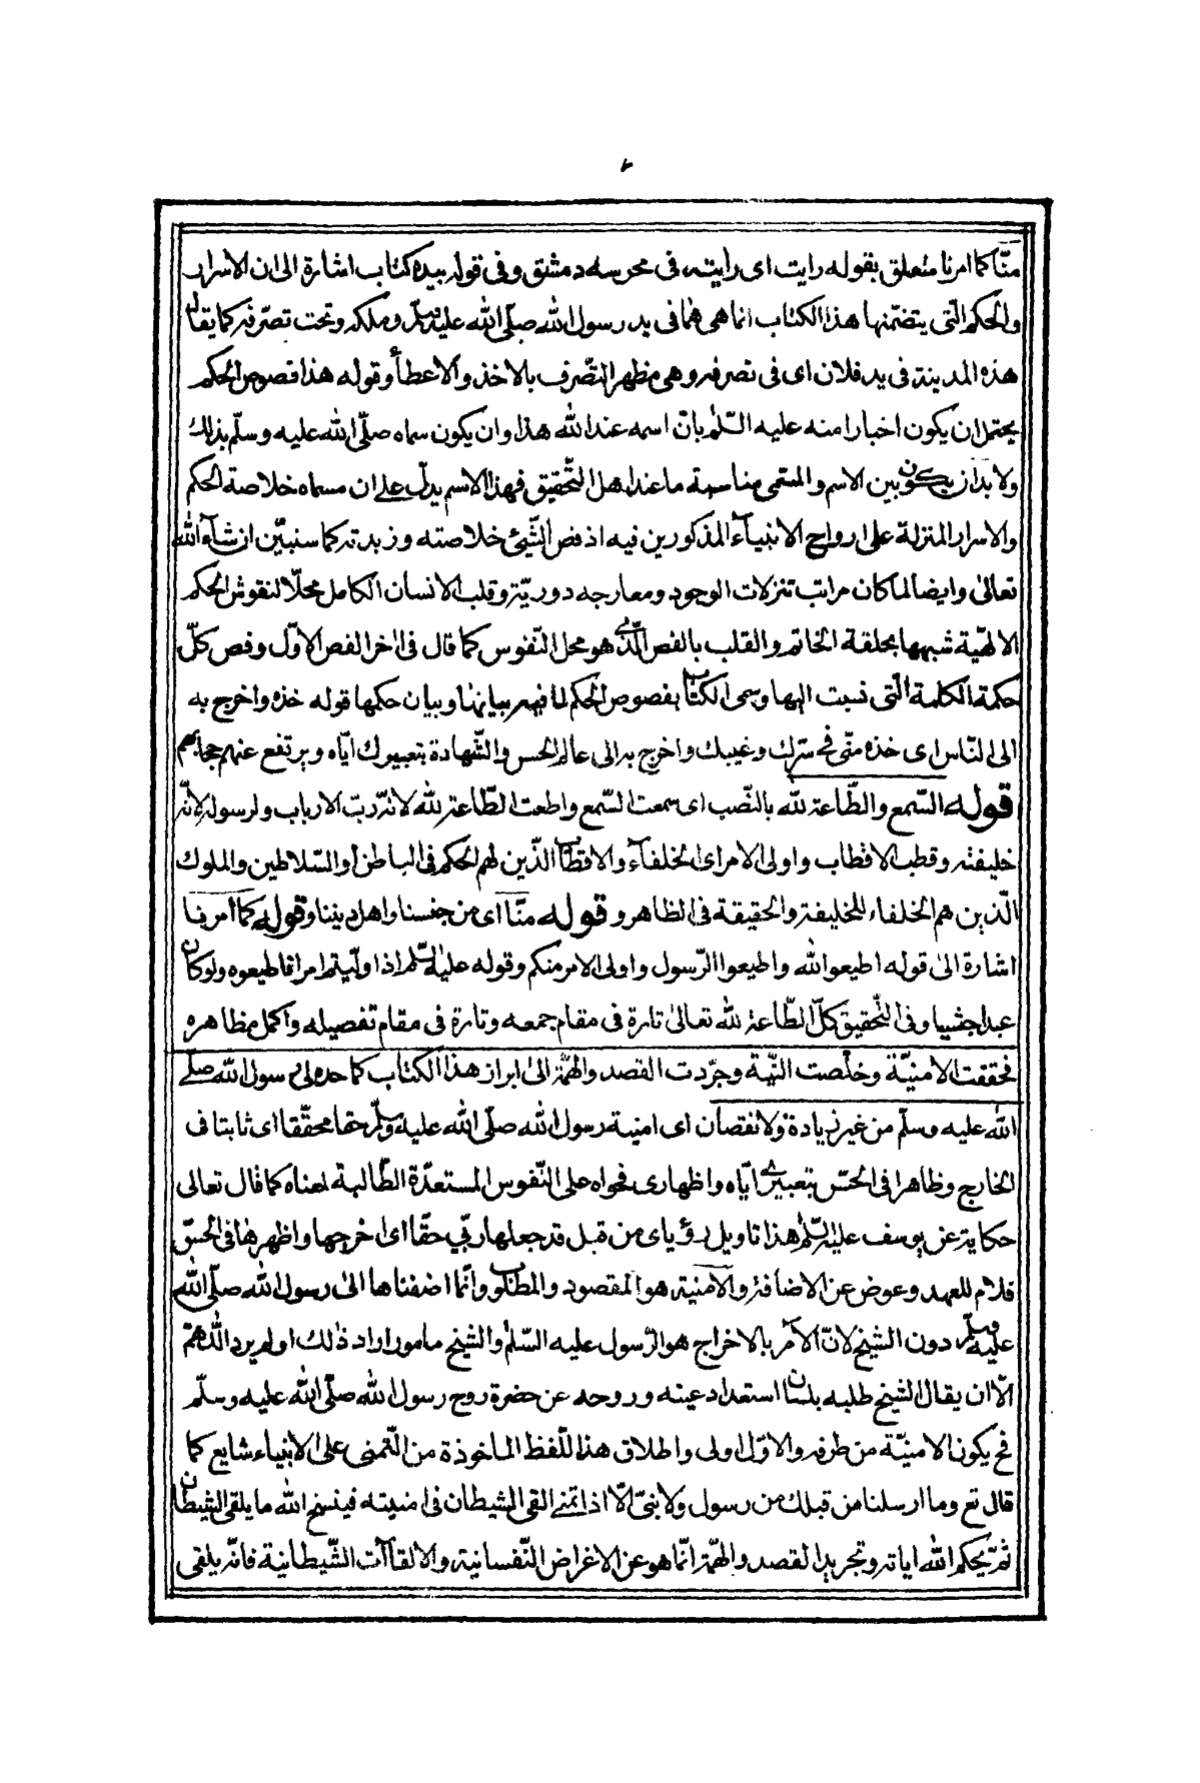 ٢
منّا كما امرنا متعلق بقوله رايت اى رايته فى محرسه دمشق وفى قوله بيده كتاب اشارة الى ان الاسرار
والحكم الّتى يتضمنها هذا الكتاب انما هى مما فى يد رسول الله صلّى الله عليه وسلم وملكه وتحت تصرّفه كما يقال
هذه المدينة فى يد فلان اى فى تصرفه وهى مظهر التصّرف بالاخذ والاعطأ وقوله هذا فصوص الحكم
يحتمل ان يكون اخبارا منه عليه السّلم بانّ اسمه عند الله هذا وان يكون سماه صلّى الله عليه وسلّم بذلك
ولا بد ان يكون بين الاسم والمسمى مناسبة ما عند اهل التّحقيق فهذا الاسم يدلّ على ان مسماه خلاصة الحكم
والاسرار المنزلة على ارواح الانبيآء المذكورين فيه اذ فص الشّئ خلاصته وزبدته كما سنبيّن ان شآء الله
تعالىٰ وايضا لما كان مراتب تنزلات الوجود ومعارجه دوريّة وقلب الانسان الكامل محلّا لنقوش الحكم
الالهيّة شبهها بحلقة الخاتم والقلب بالفص الّذى هو محل النّفوس كما قال فى اخر الفص الاوّل وفص كلّ
حكمة الكلمة الّتى نسبت اليها وسمى الكتاب بفصوص الحكم لما فيه بيانها وبيان حكمها قوله خذه واخرج به
الى النّاس اى خذه منّى فى سّرك وغيبك واخرج به الى عالم الحس والشّهادة بتعبيرك ايّاه ويرتفع عنهم حجابهم
قوله السّمع والطّاعة لله بالنّصب اى سمعت السّمع واطعت الطّاعة لله لانّه ربّ الارباب ولرسوله لانّه
خليفته وقطب الاقطاب واولى الامر اى الخلفآء والاقطاب الذّين لهم الحكم فى الباطن او السّلاطين والملوك
الّذين هم الخلفاء للخليفة والحقيقة فى الظاهر وقوله منّا اى من جنسنا واهل ديننا وقوله كما امرنا
اشارة الىٰ قوله اطيعوا لله واطيعوا الرّسول واولى الامر منكم وقوله عليه السّلم اذا ولّيتم امرا فاطيعوه ولو كان
عبدا حبشيا وفى التّحقيق كلّ الطّاعة لله تعالىٰ تارة فى مقام جمعه وتارة فى مقام تفصيله واكمل مظاهره
فحققت الامنيّة وخلّصت النيّة وجرّدت القصد والهمّة الىٰ ابراز هذا الكتاب كما حده لى رسول الله صلّى
الله عليه وسلّم من غير زيادة ولا نقصان اى امنية رسول الله صلّى الله عليه وسلّم حقا محقّقا اى ثابتا فى
الخارج وظاهرا فى الحسّ بتعبيرى ايّاه واظهارى فحواه على النّفوس المستعدّة الطّالبة لمعناه كما قال تعالى
حكاية عن يوسف عليه السّلم هذا تاويل رؤياى من قبل قد جعلها ربّى حقّا اى اخرجها واظهرها فى الحسّ
فلام للعهد وعوض عن الاضافة والامنية هو المقصود والمطلوب وانّما اضفناها الىٰ رسول الله صلّى الله
عليه وسلّم دون الشيخ لانّ الآمر بالاخراج هو الرّسول عليه السّلم والشيخ مامور اراد ذلك اولم يرد اللهم
الّا ان يقال الشيخ طلبه بلسان استعداد عينه وروحه عن حضرة روح رسول الله صلّى الله عليه وسلّم
فح يكون الامنيّة من طرفه والاوّل اولى واطلاق هذا اللّفظ الماخوذة من التّمنى على الانبياء شايع كما
قال تع وما ارسلنا من قبلك من رسول ولا نبىّ الّا اذا تمنى القى الشيطان فى امنيته فينسخ الله ما يلقى الشيطان
ثمّ يحكم الله اياته وتجريد القصد والهمّة انّما هو عن الاغراض النّفسانية والالقاآت الشّيطانية فانّه يلقى